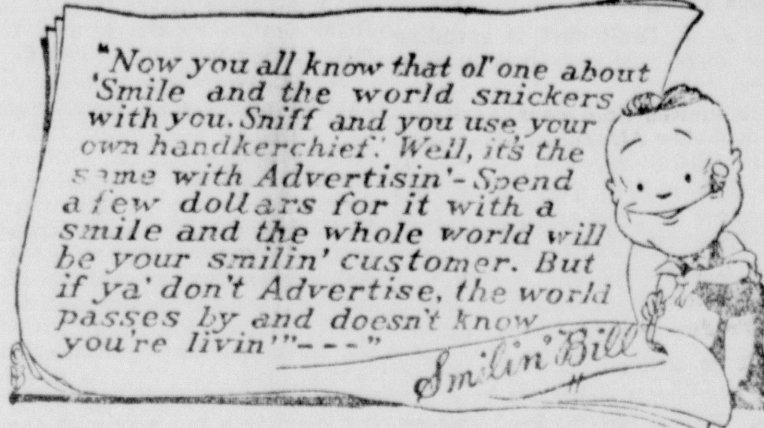 "Now you all know that ol' one about
'Smile and the world snickers
with you. Sniff and you use your
own handkerchief.' Well, it's the
same with Advertisin'- Spend
a few dollars for it with a
smile and the whole world will
be your smilin' customer. But
if ya' don't Advertise, the world
passes by and doesn't know
you're livin'"---"
Smilin' Bill